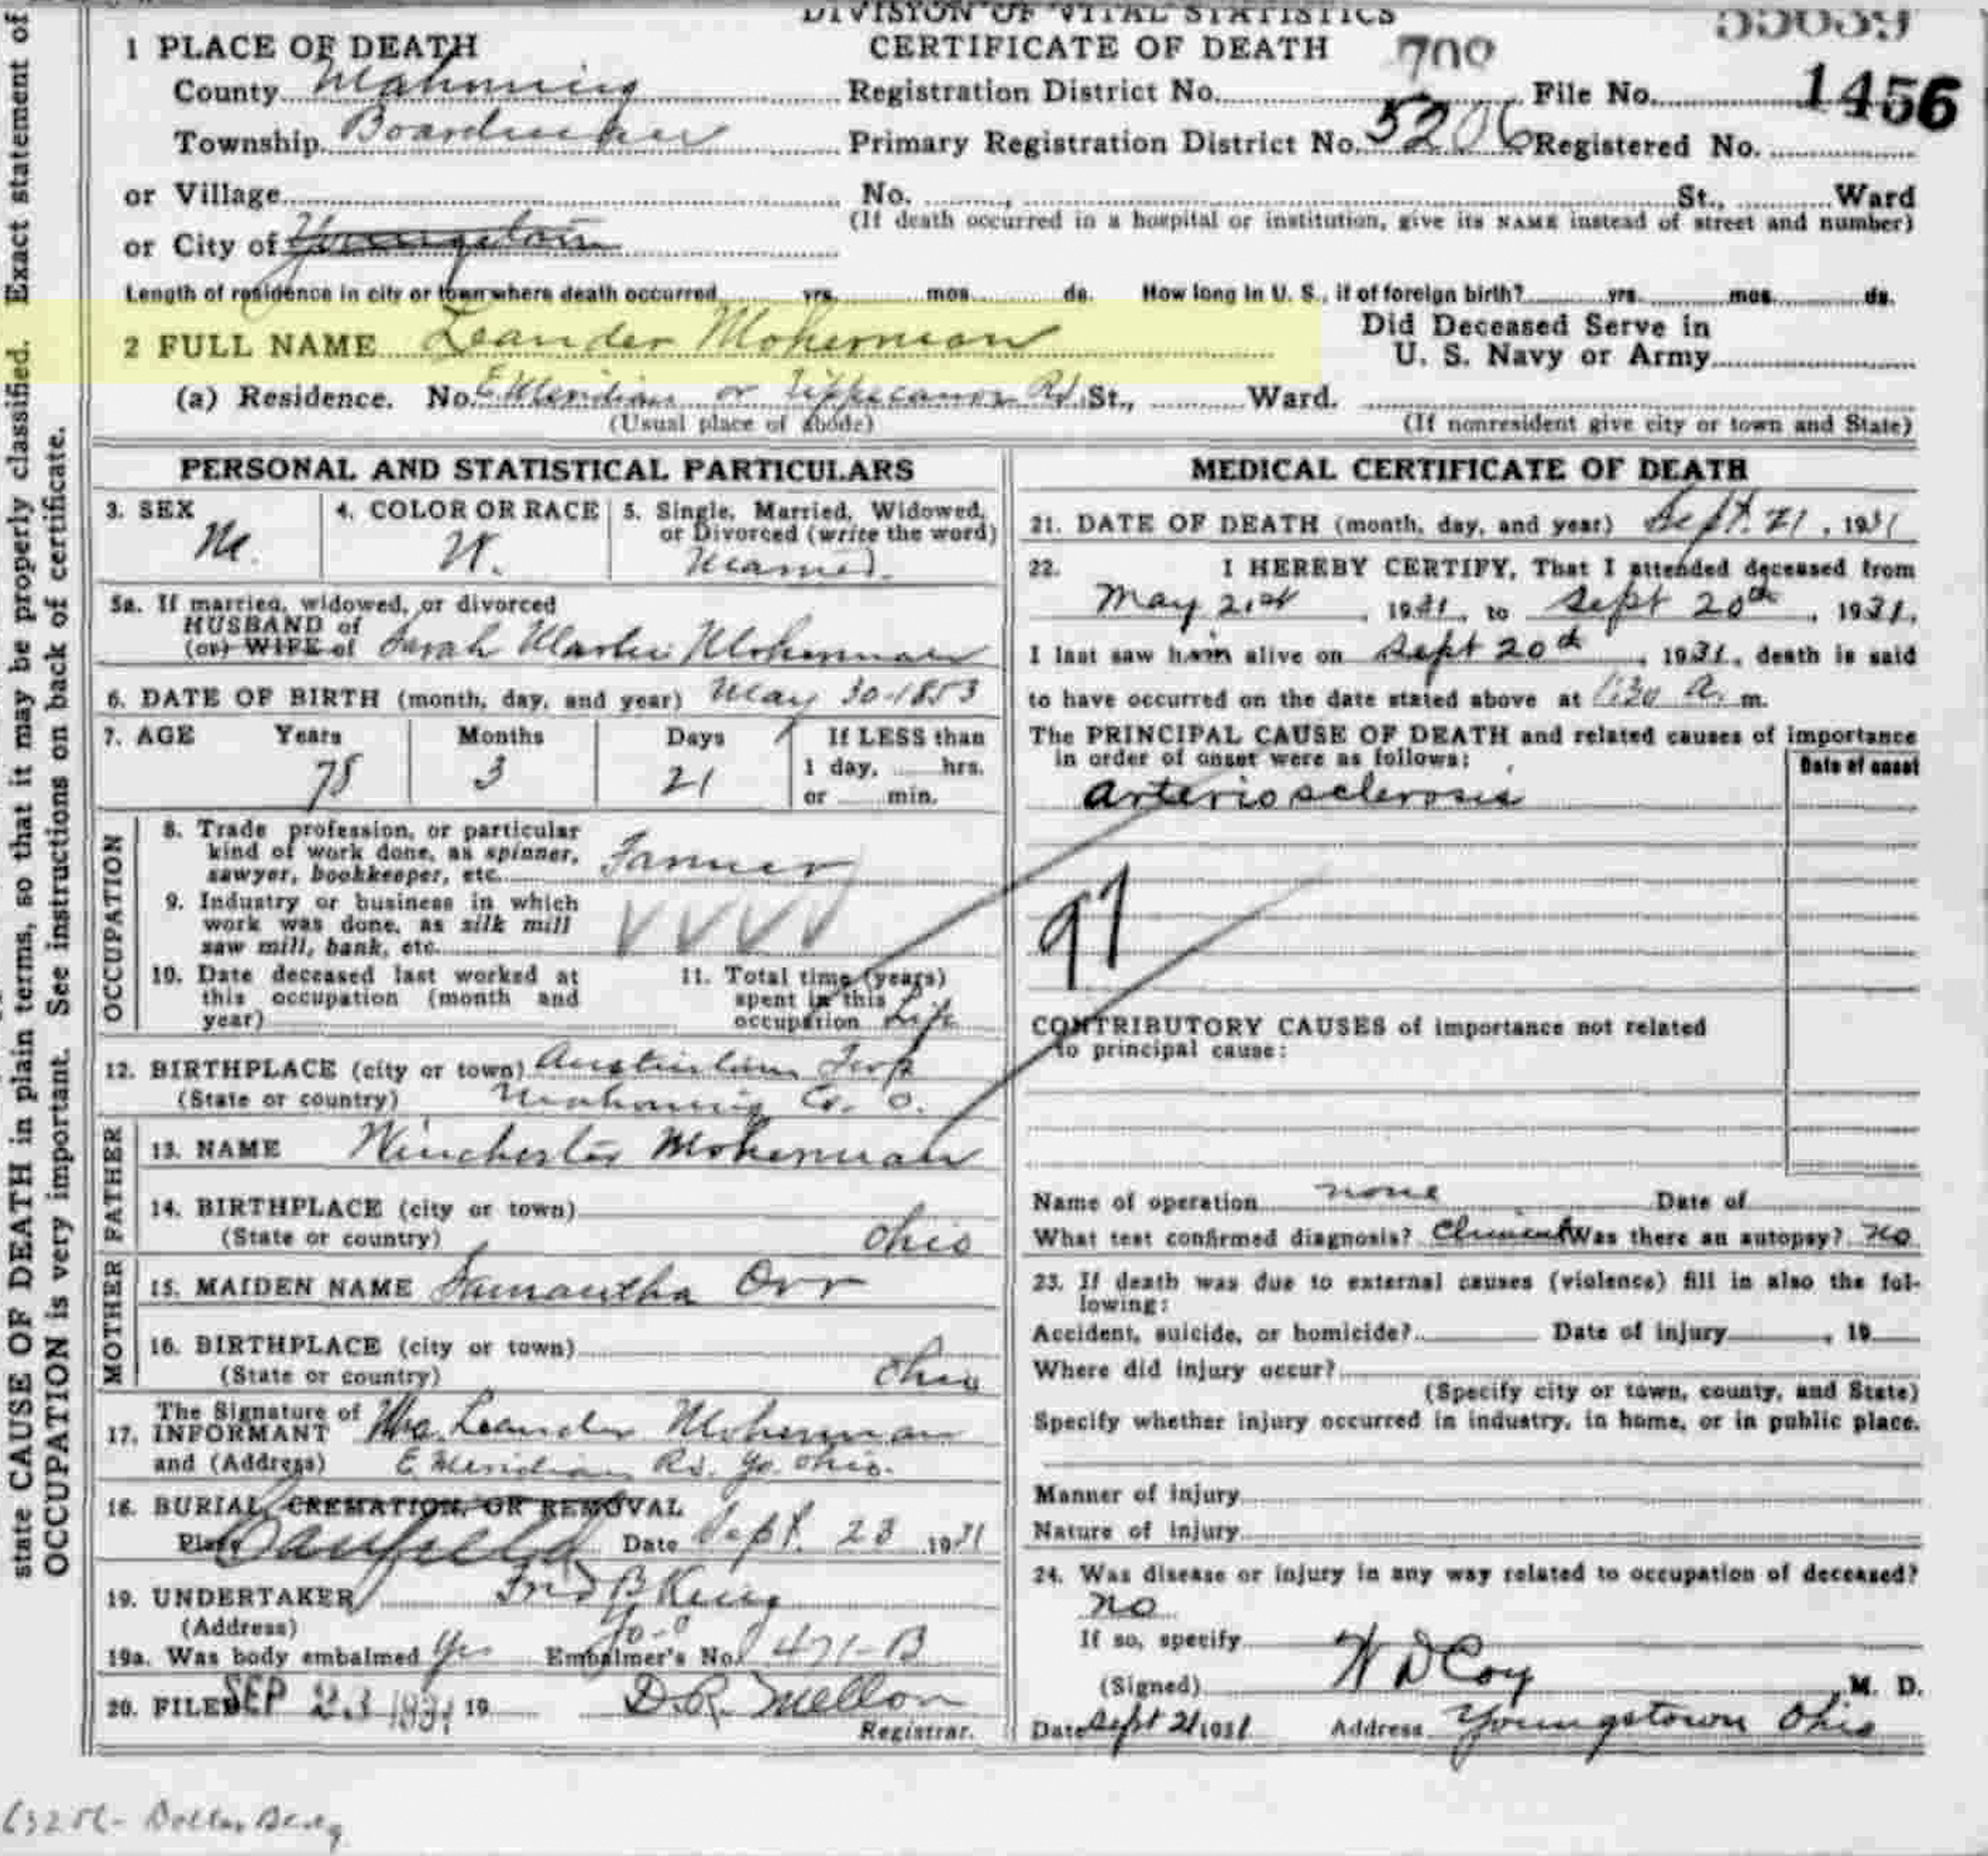 DIVISION OF VITAL STATISTICS
55039
1 PLACE OF DEATH
CERTIFICATE OF DEATH
700
County Mahoning Registration District No. File No. 1456
Township Boardman Primary Registration District No. 5206 Registered No.
or Village No. St., Ward
(If death occurred in a hospital or institution, give its NAME instead of street and number)
or City of Youngstown
Length of residence in city or town where death occurred yrs. mos. ds. How long in U. S., if of foreign birth? yrs. mos. ds.
2 FULL NAME Leander Moherman
Did Deceased Serve in
U. S. Navy or Army
(a) Residence. No. E Meridian or Tippecanoe Rd. St., Ward.
(Usual place of abode) (If nonresident give city or town and State)
PERSONAL AND STATISTICAL PARTICULARS
3. SEX 4. COLOR OR RACE 5. Single, Married, Widowed,
or Divorced (write the word)
M. W. Married.
5a. If married, widowed, or divorced
HUSBAND of
(or) WIFE of Sarah Moherman
6. DATE OF BIRTH (month, day, and year) May 30-1853
7. AGE Years Months Days If LESS than
1 day, hrs.
78 3 21
or min.
OCCUPATION
8. Trade profession, or particular
kind of work done, as spinner,
sawyer, bookkeeper, etc. Farmer
9. Industry or business in which
work was done, as silk mill
saw mill, bank, etc.
10. Date deceased last worked at
this occupation (month and
year)
11. Total time (years)
spent in this
occupation Life
12. BIRTHPLACE (city or town) Austintown Twp
(State or country) Mahoning Co. O.
FATHER
13. NAME Winchester Moherman
14. BIRTHPLACE (city or town)
(State or country) Ohio
MOTHER
15. MAIDEN NAME Samantha Orr
16. BIRTHPLACE (city or town)
(State or country) Ohio
17. The Signature of
INFORMANT Mrs. Leander Moherman
and (Address) E. Meridian Rd. Yo. Ohio.
18. BURIAL, CREMATION, OR REMOVAL
Place Canfield Date Sept. 23 1931
19. UNDERTAKER Fred B King
(Address) Yo-O
19a. Was body embalmed Yes Embalmer's No. 471-B
20. FILED SEP 23 1931 19 D.R. Mellon
Registrar.
MEDICAL CERTIFICATE OF DEATH
21. DATE OF DEATH (month, day, and year) Sept. 21, 1931
22. I HEREBY CERTIFY, That I attended deceased from
May 21st, 1931, to Sept 20th, 1931.
I last saw him alive on Sept 20th, 1931, death is said
to have occurred on the date stated above at 1:30 A. m.
The PRINCIPAL CAUSE OF DEATH and related causes of importance
in order of onset were as follows:
Date of onset
arterio sclerosis
97
CONTRIBUTORY CAUSES of importance not related
to principal cause:
Name of operation none Date of
What test confirmed diagnosis? Clinical Was there an autopsy? no
23. If death was due to external causes (violence) fill in also the fol-
lowing:
Accident, suicide, or homicide? Date of injury , 19
Where did injury occur?
(Specify city or town, county, and State)
Specify whether injury occurred in industry, in home, or in public place.
Manner of injury
Nature of injury
24. Was disease or injury in any way related to occupation of deceased?
no
If so, specify
(Signed) W D Coy M. D.
Date Sept 21 1931 Address Youngstown Ohio
state CAUSE OF DEATH in plain terms, so that it may be properly classified. Exact statement of
OCCUPATION is very important. See instructions on back of certificate.